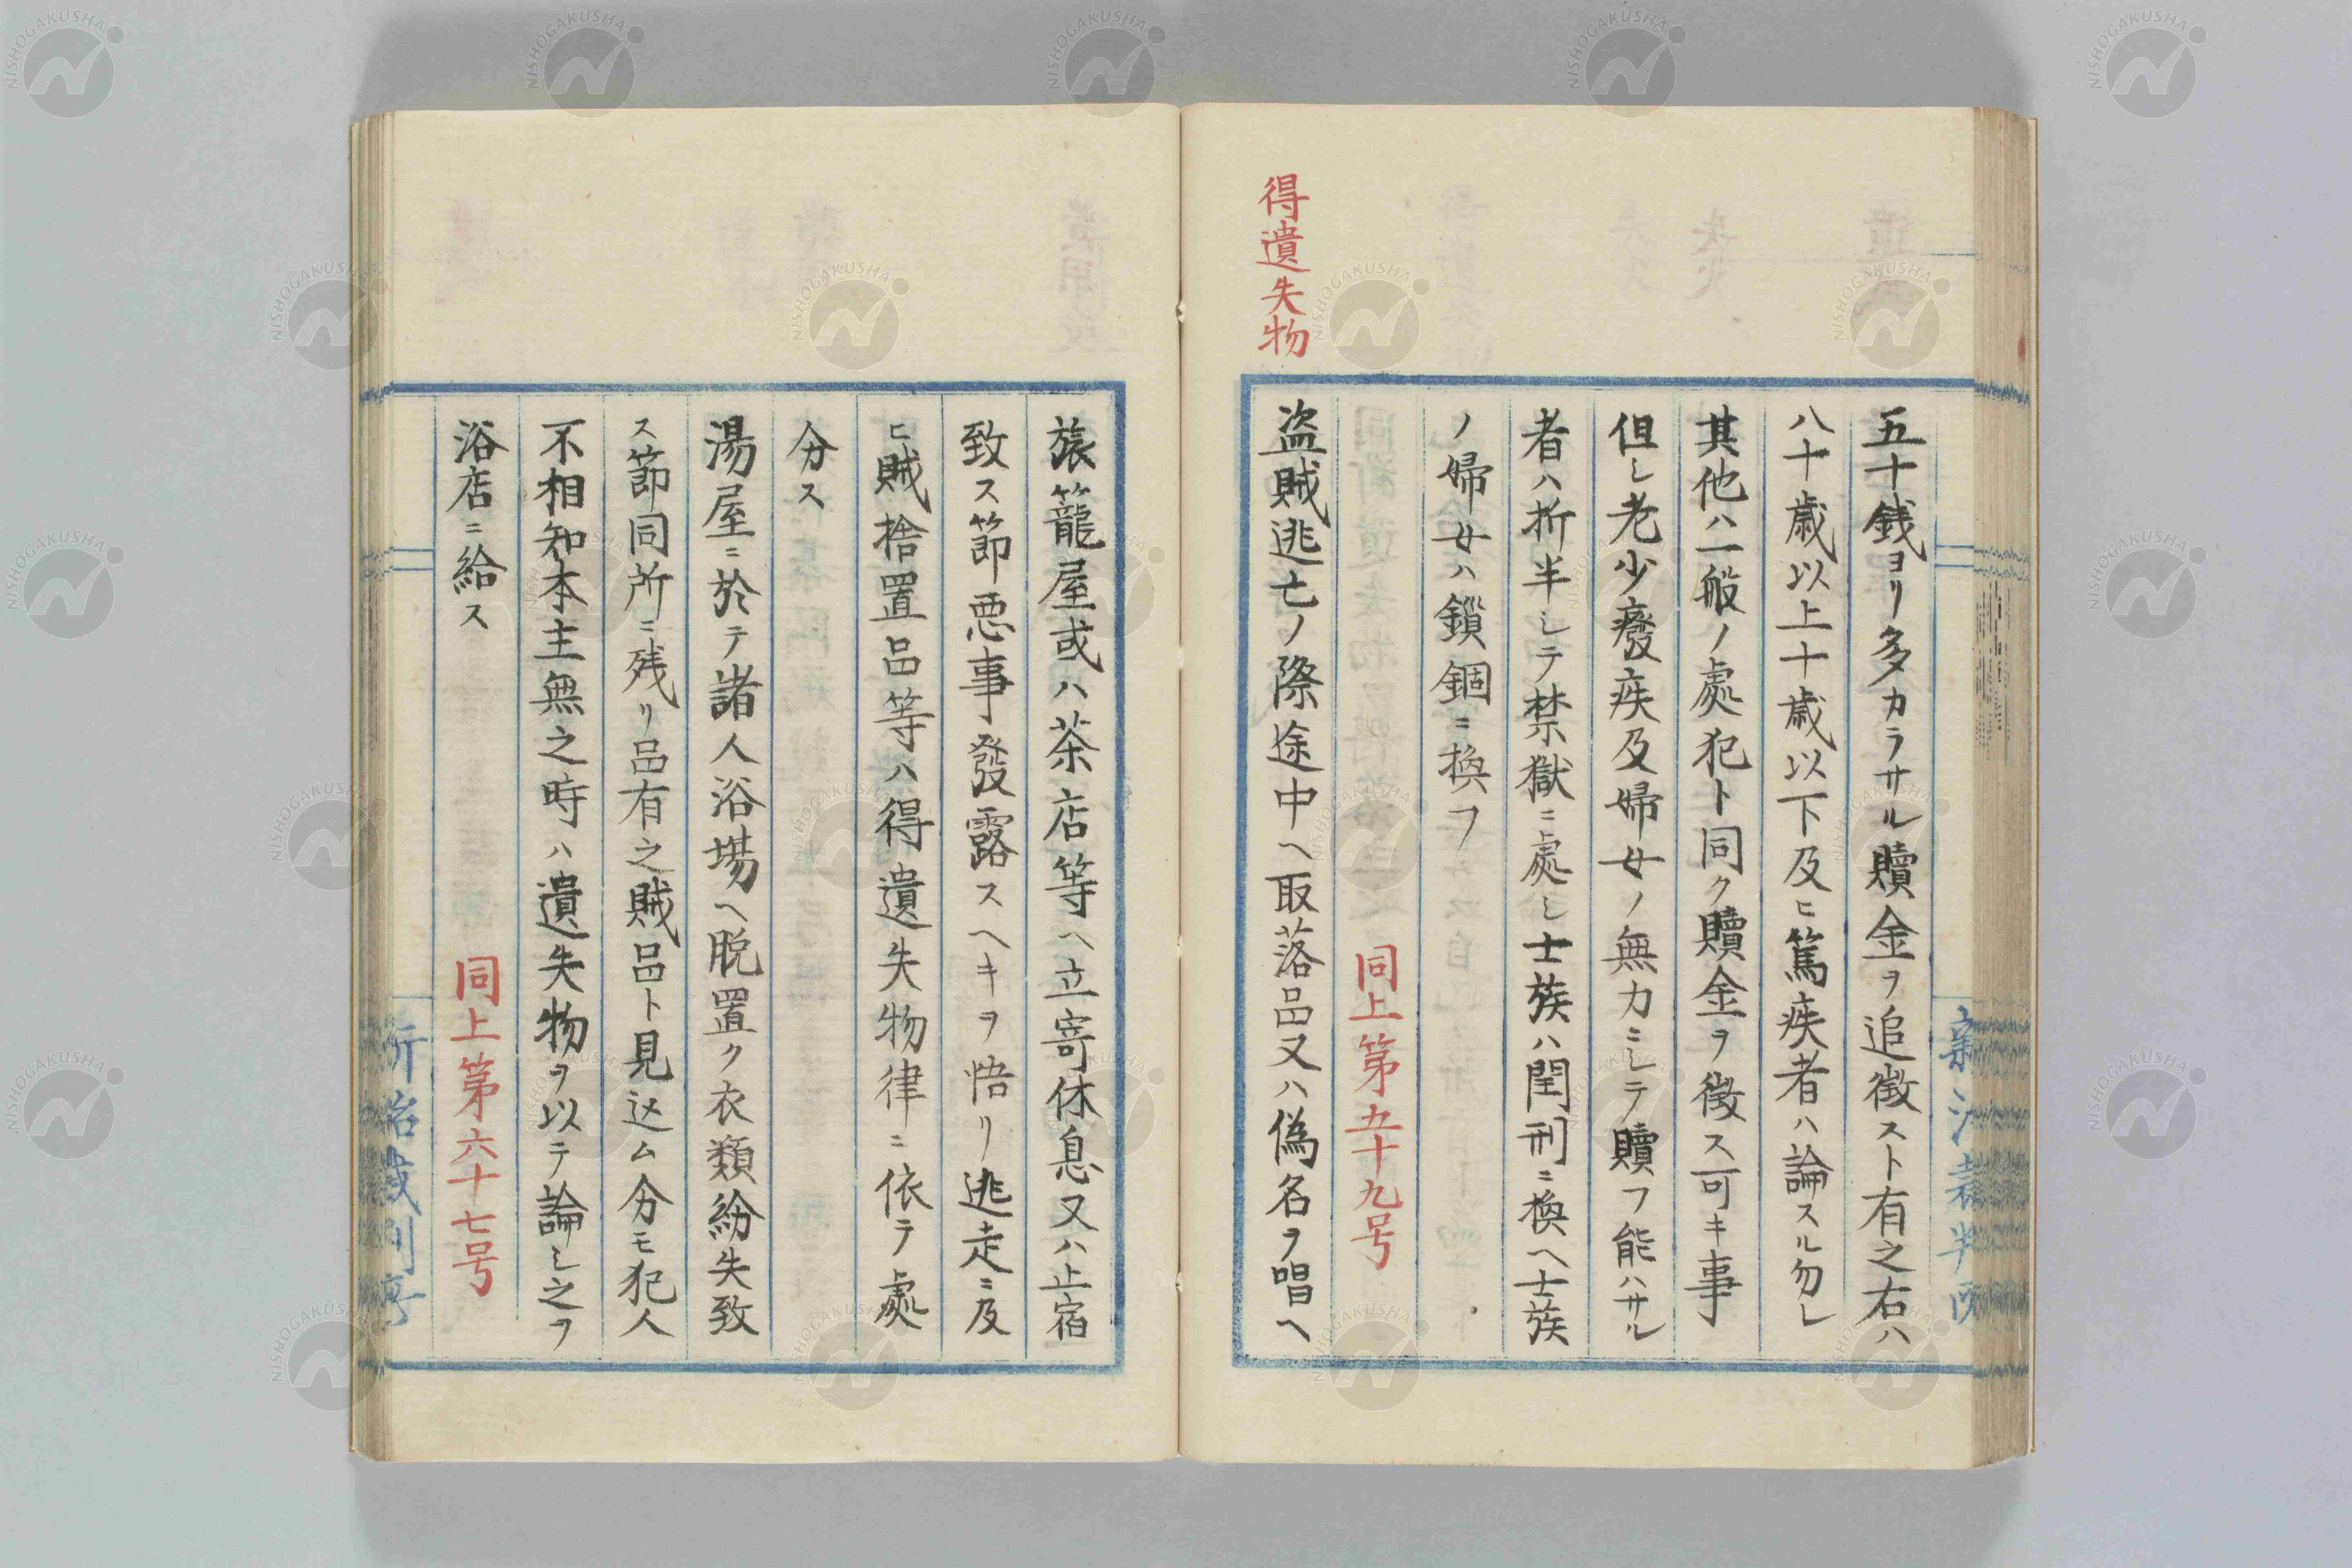 五十銭ヨリ多カラサル贖金ヲ追徴スト有之右ハ
八十歳以上十歳以下及ヒ篤疾者ハ論スル勿レ
其他ハ一般ノ處犯ト同ク贖金ヲ徴ス可キ事
但シ老少癈疾及婦女ノ無力ニシテ贖フ能ハサル
者ハ折半シテ禁獄ニ處シ士族ハ閏刑ニ換ヘ士族
ノ婦女ハ鎖錮ニ換フ
同上第五十九号
得遺失物
盗賊逃亡ノ際途中ヘ取落品又ハ偽名ヲ唱ヘ
旅籠屋或ハ茶店等ヘ立寄休息又ハ止宿
致ス節悪事發露スヘキヲ悟リ逃走ニ及
ヒ賊捨置品等ハ得遺失物律ニ依テ處
分ス
湯屋ニ於テ諸人浴場ヘ脱置ク衣類紛失致
ス節同所ニ残リ品有之賊品ト見込ム分モ犯人
不相知本主無之時ハ遺失物ヲ以テ論シ之ヲ
浴店ニ給ス
同上第六十七号
NISHOGAKUSHA